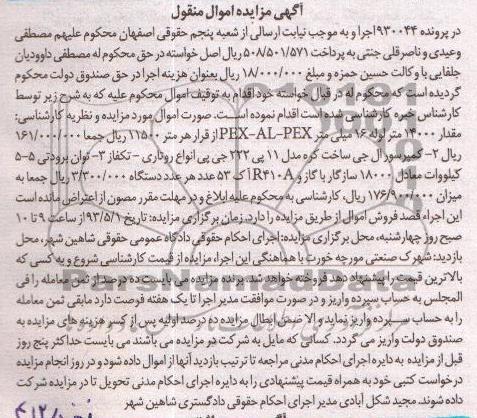 آگهی مزایده اموال منقول
در پرونده ۹۳۰۰۴۴ اجرا و به موجب نیابت ارسالی از شعبه پنجم حقوقی اصفهان محکوم علیهم مصطفی
وعیدی و ناصرقلی جنتی به پرداخت ۵۰۸/۵۰۱/۵۷۱ ریال اصل خواسته در حق محکوم له مصطفی داوودیان
جلفایی با وکالت حسین حمزه و مبلغ ۱۸/۰۰۰/۰۰۰ ریال بعنوان هزینه اجرا در حق صندوق دولت محکوم
گردیده است که محکوم له در قبال خواسته خود اقدام به توقیف اموال محکوم علیه که به شرح زیر توسط
کارشناس خبره کارشناسی شده است اقدام نموده است. صورت اموال مورد مزایده و نظریه کارشناسی:
مقدار ۱۴۰۰۰ متر لوله ۱۶ میلی متر PEX-AL-PEX از قرار هر متر ۱۱۵۰۰ ریال جمعا ۱۶۱/۰۰۰/۰۰۰
ریال ۲- کمپرسور ال جی ساخت کره مدل ۱۱ پی ۲۲۲ جی پی انواع روتاری - تکفاز ۳- توان برودتی ۵-۵
کیلووات معادل ۱۸۰۰۰ سازگار با گاز و R۴۱۰-A آ ک ۵۳ عدد هر عدد دستگاه ۳/۳۰۰/۰۰۰ ریال جمعا به
میزان ۱۷۶/۹۰۰/۰۰۰ ریال، کارشناسی به محکوم علیه ابلاغ و در مهلت مقرر مصون از اعتراض مانده است
این اجراء قصد فروش اموال از طریق مزایده را دارد. زمان برگزاری مزایده: تاریخ ۹۳/۵/۱ از ساعت ۹ تا ۱۰
صبح روز چهارشنبه، محل برگزاری مزایده: اجرای احکام حقوقی دادگاه عمومی حقوقی شاهین شهر، محل
بازدید: شهرک صنعتی مورچه خورت با هماهنگی این اجراء مزایده از قیمت کارشناسی شروع و به کسی که
بالاترین قیمت را پیشنهاد دهد فروخته خواهد شد. برنده مزایده می بایست ده درصد از ثمن معامله را فی
المجلس به حساب سپرده واریز و در صورت موافقت مدیر اجرا تا یک هفته فرصت دارد مابقی ثمن معامله
را به حساب سپرده واریز نماید و الا ضمن ابطال مزایده ده درصد اولیه پس از کسر هزینه های مزایده به
صندوق دولت واریز می گردد. کسانی که مایل به شرکت در مزایده می باشند می بایست حداکثر پنج روز
قبل از مزایده به دایره اجرای احکام مدنی مراجعه تا ترتیب بازدید آنها از اموال داده شود و در روز انجام مزایده
درخواست کتبی خود به همراه قیمت پیشنهادی را به دایره اجرای احکام مدنی تحویل تا در مزایده شرکت
داده شوند. مجید شکل آبادی مدیر اجرای احکام حقوقی دادگستری شاهین شهر